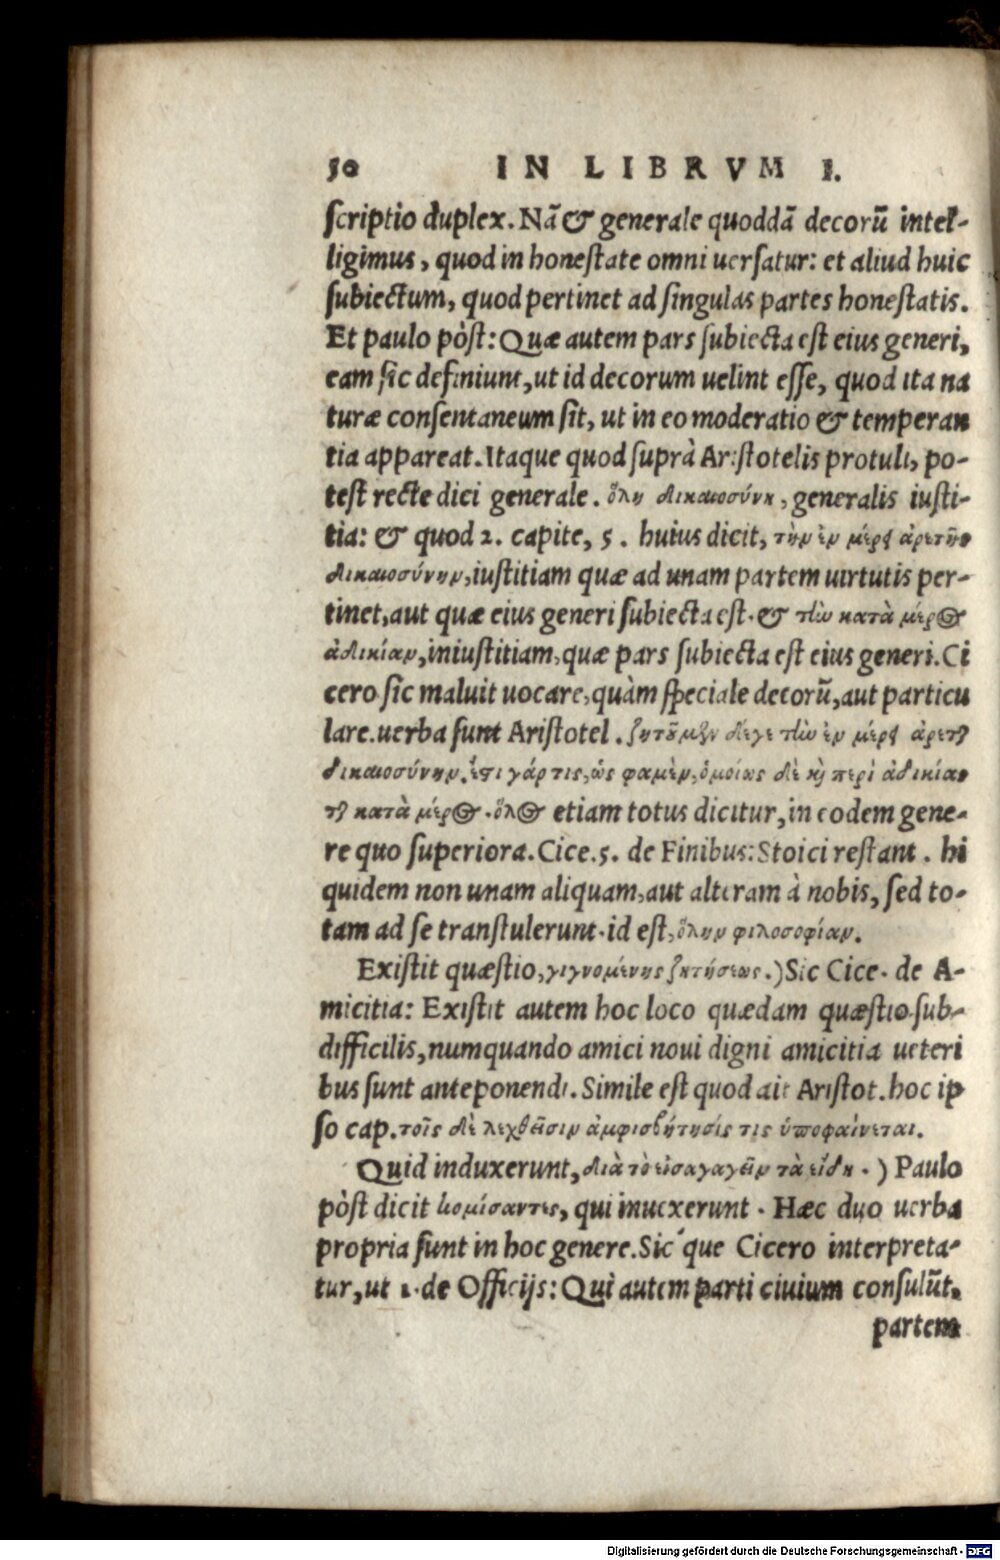 50 IN LIBRVM I.
scriptio duplex. Nã & generale quoddã decorũ intel-
ligimus, quod in honestate omni uersatur: et aliud huic
subiectum, quod pertinet ad singulas partes honestatis.
Et paulo pòst: Quæ autem pars subiecta est eius generi,
eam sic definiunt, ut id decorum uelint esse, quod ita na
turæ consentaneum sit, ut in eo moderatio & temperan
tia appareat. Itaque quod suprà Aristotelis protuli, po-
test recte dici generale. ὅλη δικαιοσύνη, generalis iusti-
tia: & quod 2. capite, 5. huius dicit, τὴν ἐν μέρει ἀρετῆς
δικαιοσύνην, iustitiam quæ ad unam partem uirtutis per-
tinet, aut quæ eius generi subiecta est. & τὴν κατὰ μέρος
ἀδικίαν, iniustitiam, quæ pars subiecta est eius generi. Ci
cero sic maluit uocare, quàm speciale decorũ, aut particu
lare. uerba sunt Aristotel. ζητοῦμεν δέγε τὴν ἐν μέρει ἀρετῆς
δικαιοσύνην. ἔστι γάρ τις, ὡς φαμὲν, ὁμοίως δὲ καὶ περὶ ἀδικίας
τῆς κατὰ μέρος. ὅλος etiam totus dicitur, in eodem gene-
re quo superiora. Cice. 5. de Finibus: Stoici restant. hi
quidem non unam aliquam, aut alteram à nobis, sed to-
tam ad se transtulerunt. id est, ὅλην φιλοσοφίαν.
Existit quæstio, γιγνομένης ζητήσεως.) Sic Cice. de A-
micitia: Existit autem hoc loco quædam quæstio sub-
difficilis, numquando amici noui digni amicitia ueteri
bus sunt anteponendi. Simile est quod ait Aristot. hoc ip
so cap. τοῖς δὲ λεχθεῖσιν ἀμφισβήτησίς τις ὑποφαίνεται.
Quid induxerunt, διὰ τὸ εἰσαγαγεῖν τὰ εἴδη.) Paulo
pòst dicit κομίσαντες, qui inuexerunt. Hæc duo uerba
propria sunt in hoc genere. Sic que Cicero interpreta-
tur, ut 1. de Officijs: Qui autem parti ciuium consulũt,
partem
Digitalisierung gefördert durch die Deutsche Forschungsgemeinschaft - DFG